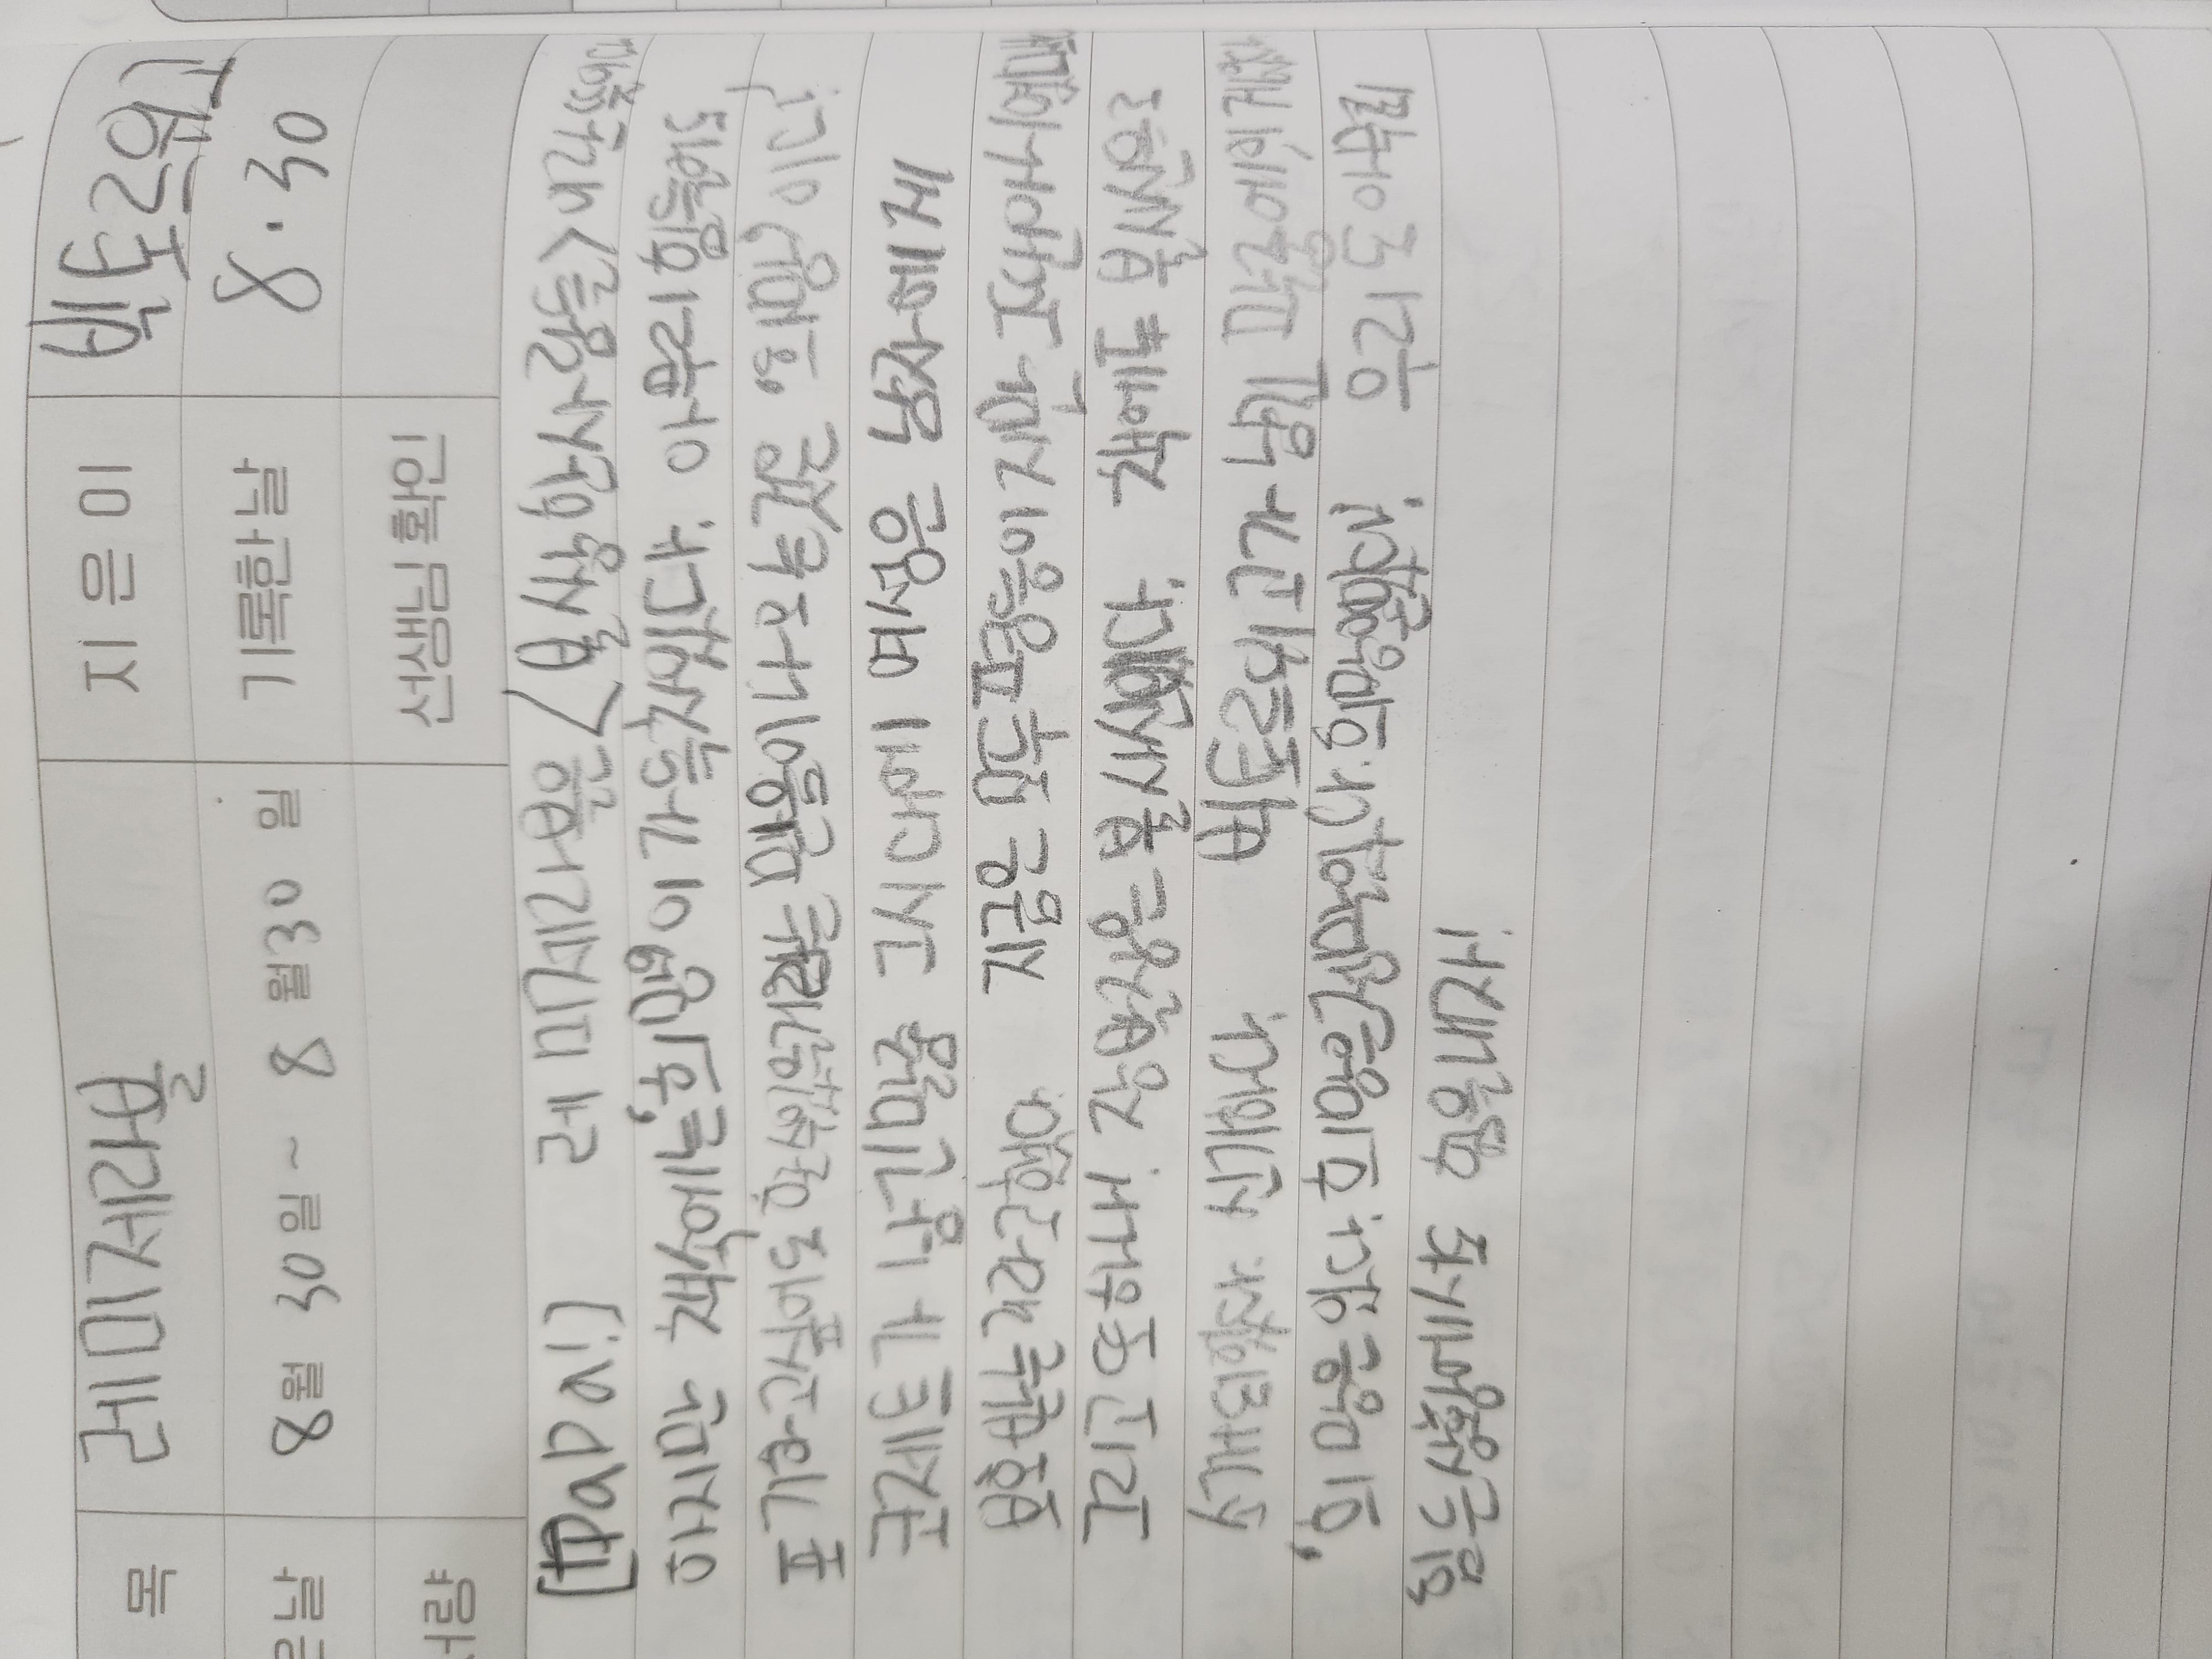 목 레미제라블 지은이 빅토르위고
은날 8월 30일 ~ 8월 30일 기록한 날 8.30
서량 선생님 확인
레미제라블은 <불쌍한사람들>이란 뜻이다
하지만 책속에는 '희망'이 가득차있다. 아무리 힘들어도,
포기하고싶어도 할수있을거라는 믿음이나오는것은 '희망'이다!
코제트가 남긴말중 그시대에 여성은 남자에게
보호받는거라고했다. 지금은 모두평등이지만
그리고 또하나! 장발장은 불사신이다. 책에도 불사신으로
소개되있다. 신기하다. 빅토르위고가 남긴 말중에
'희망은 있다. 희망은 있다. 우리도 아무리
힘든상황에서도 힘을내자!